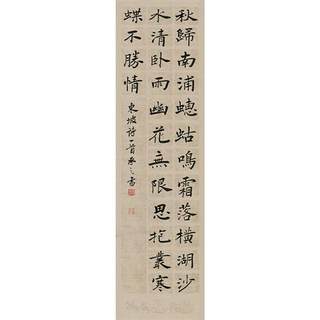 秋歸南浦蟪蛄鳴霜落橫湖沙
水清臥雨幽花無限思抱叢寒
蝶不勝情
東坡詩一首